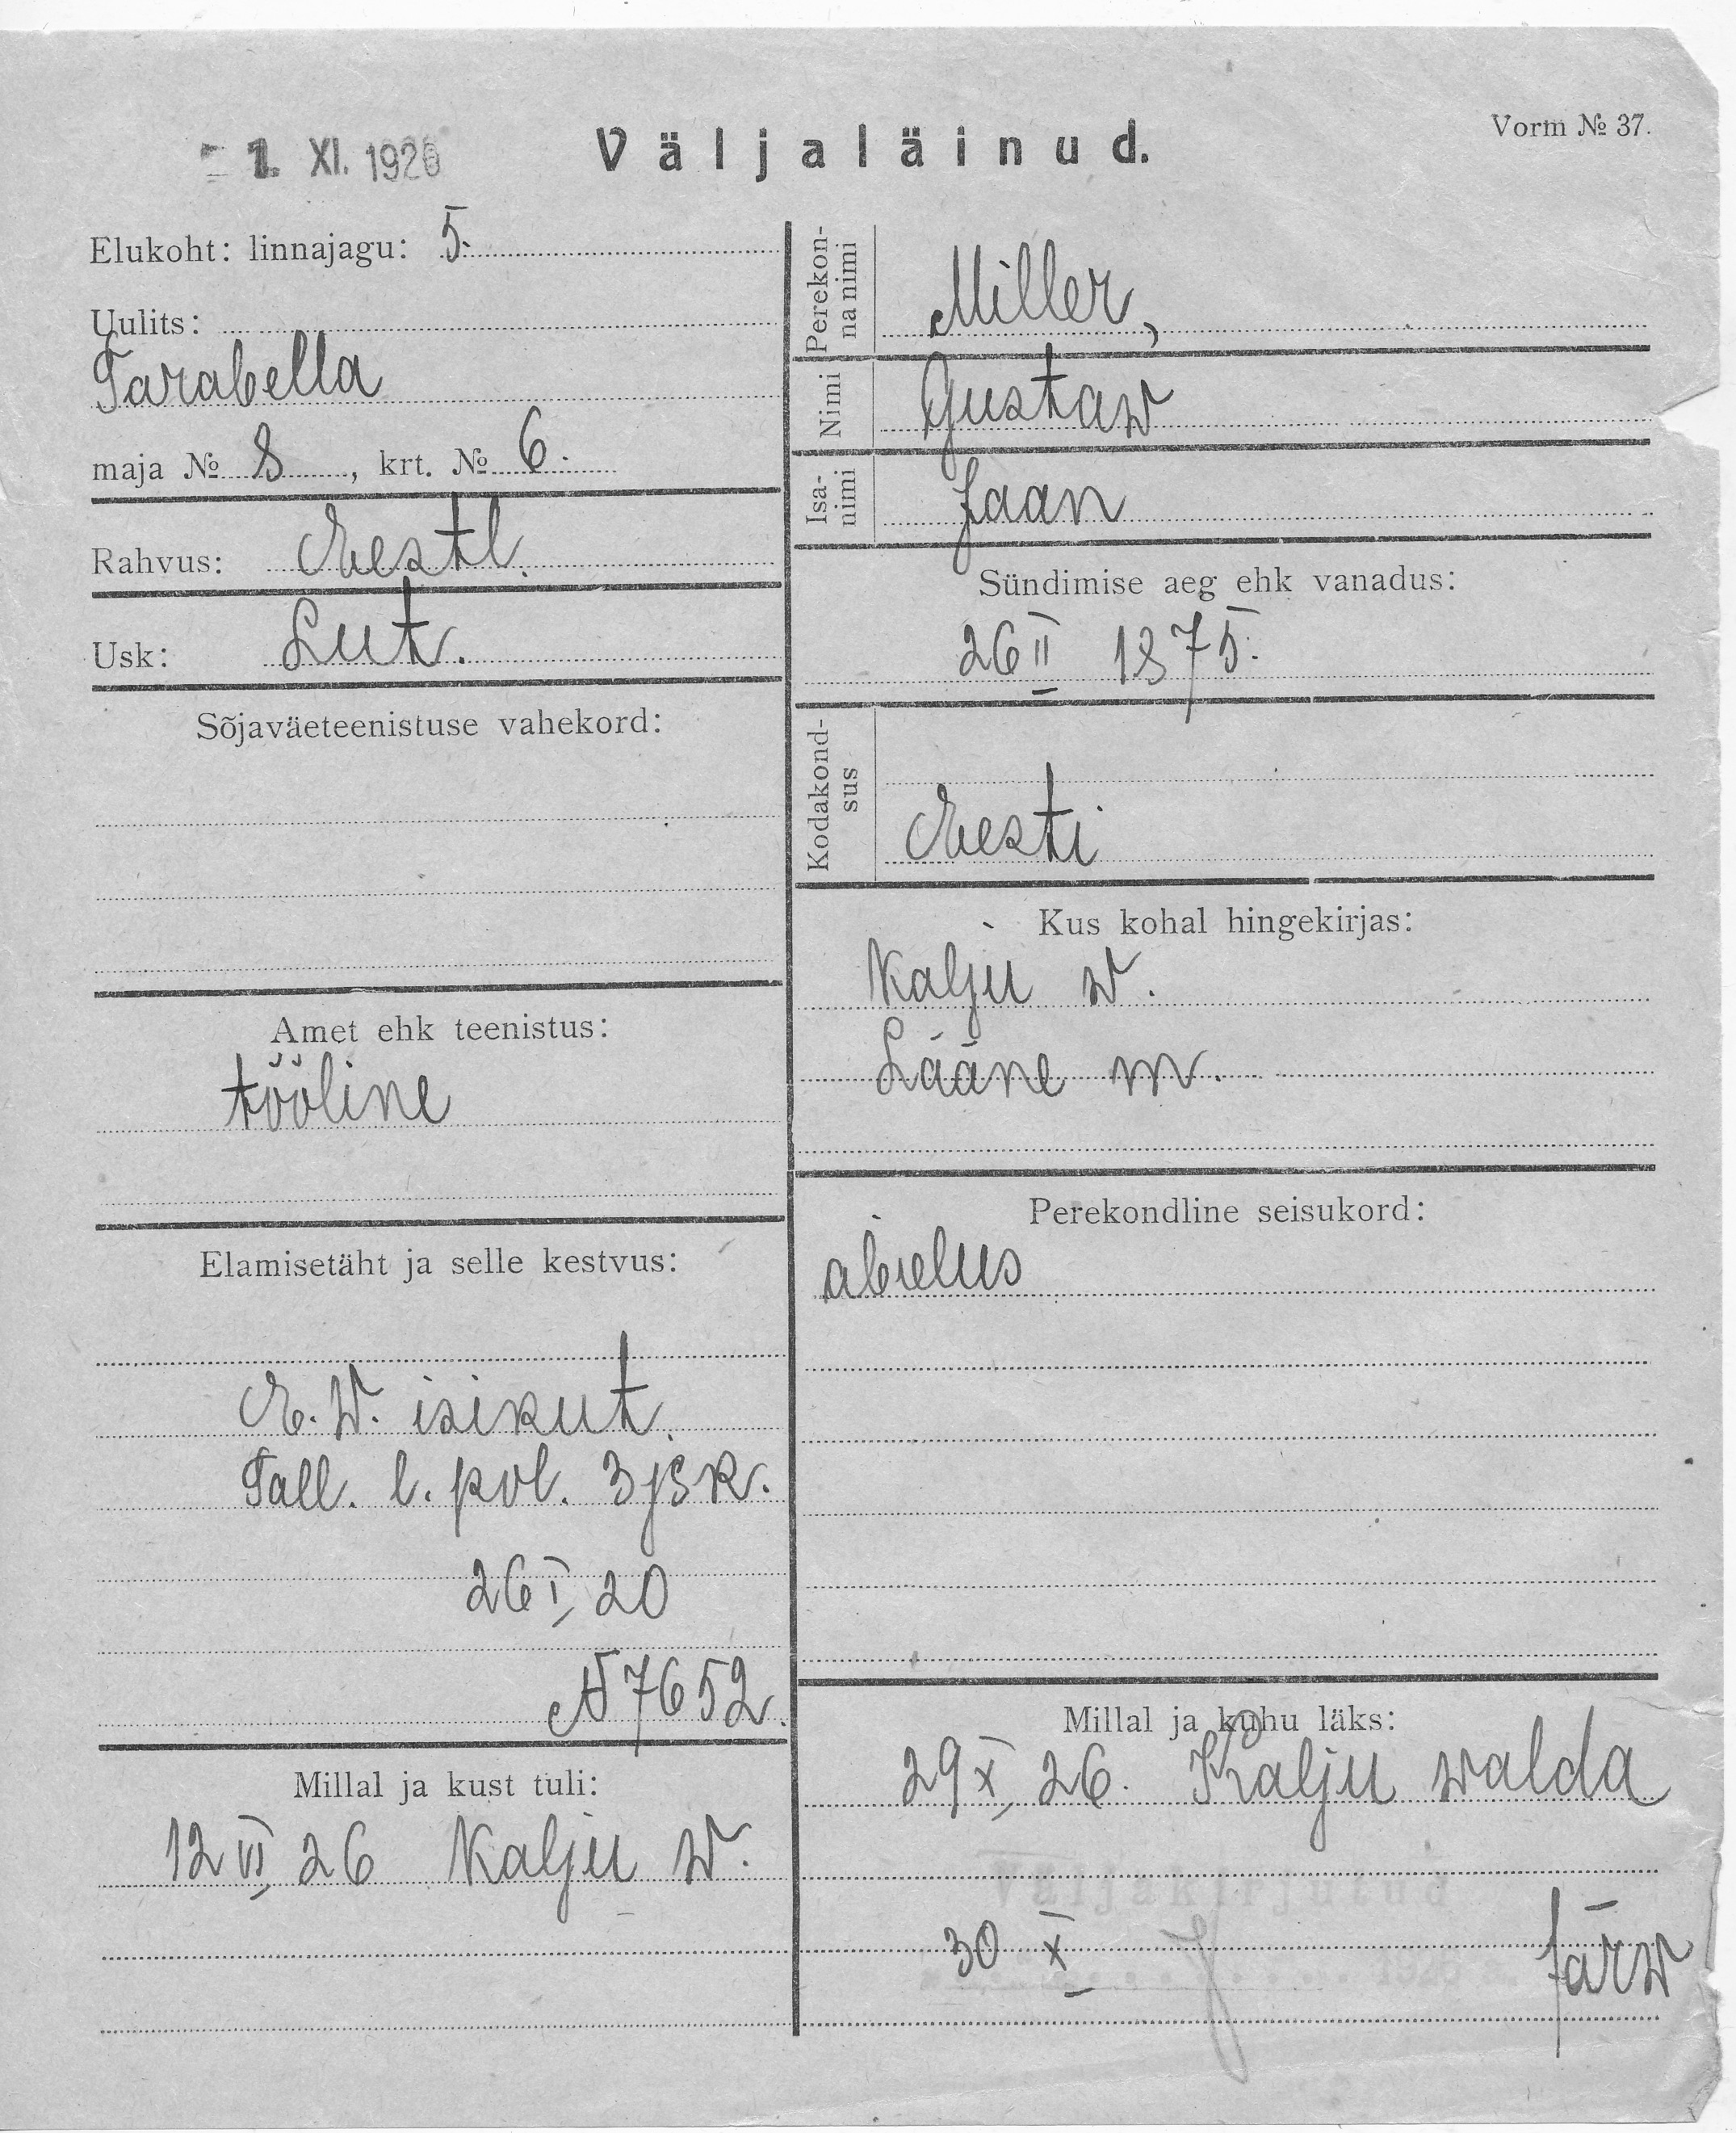 Vorm № 37.
1. XI. 1926
Väljaläinud.
Elukoht: linnajagu: 5.
Uulits:
Tarabella
maja № 8, krt. № 6.
Rahvus: Eestl.
Usk: Lut.
Sõjaväeteenistuse vahekord:
Amet ehk teenistus:
tööline
Elamisetäht ja selle kestvus:
E. W. isikut.
Tall. l. pol. 3 jsk.
26 I, 20
N 7652.
Millal ja kust tuli:
12 VI, 26 Kalju w.
Perekon-
na nimi
Miller,
Nimi Gustaw
Isa-
nimi
Jaan
Sündimise aeg ehk vanadus:
26 II 1875.
Kodakond-
sus
Eesti
Kus kohal hingekirjas:
Kalju w.
Lääne m.
Perekondline seisukord:
abielus
Millal ja kuhu läks:
29 X, 26. Kalju walda
Väljakirjutud
30 X 192
Järw